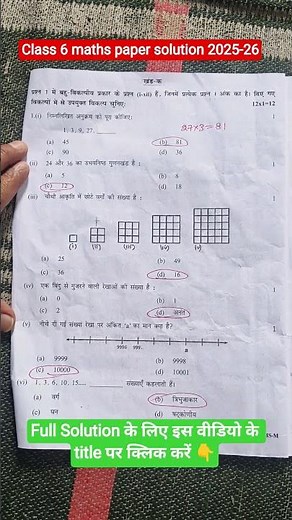 Class 6 maths paper solution 2025-26
खण्ड-क
प्रश्न 1 में बहु-विकल्पीय प्रकार के प्रश्न (i-xii) हैं, जिनमें प्रत्येक प्रश्न 1 अंक का है। दिए गए
विकल्पों में से उपयुक्त विकल्प चुनिए: 12x1=12
1.(i) निम्नलिखित अनुक्रम को पूरा कीजिए: 1
1, 3, 9, 27, 27x3=81
(a) 45 (b) 81
(c) 90 (d) 36
(ii) 24 और 36 का उच्चनिष्ठ गुणनखंड है : 1
(a) 5 (b) 6
(c) 12 (d) 18
(iii) चौथी आकृति में छोटे वर्गों की संख्या है : 1
(i) (ii) (iii) (iv) (v)
(a) 25 (b) 49
(c) 36 (d) 16
(iv) एक बिंदु से गुजरने वाली रेखाओं की संख्या है : 1
(a) 0 (b) 1
(c) 2 (d) अनंत
(v) नीचे दी गई संख्या रेखा पर अंकित 'a' का मान क्या है? 1
9996 9997 a
(a) 9999 (b) 9998
(c) 10000 (d) 10001
(vi) 1, 3, 6, 10, 15.... संख्याएँ कहलाती हैं। 1
(a) वर्ग (b) त्रिभुजाकार
(c) घन (d) षट्कोणीय
Full Solution के लिए इस वीडियो के
title पर क्लिक करें 👇